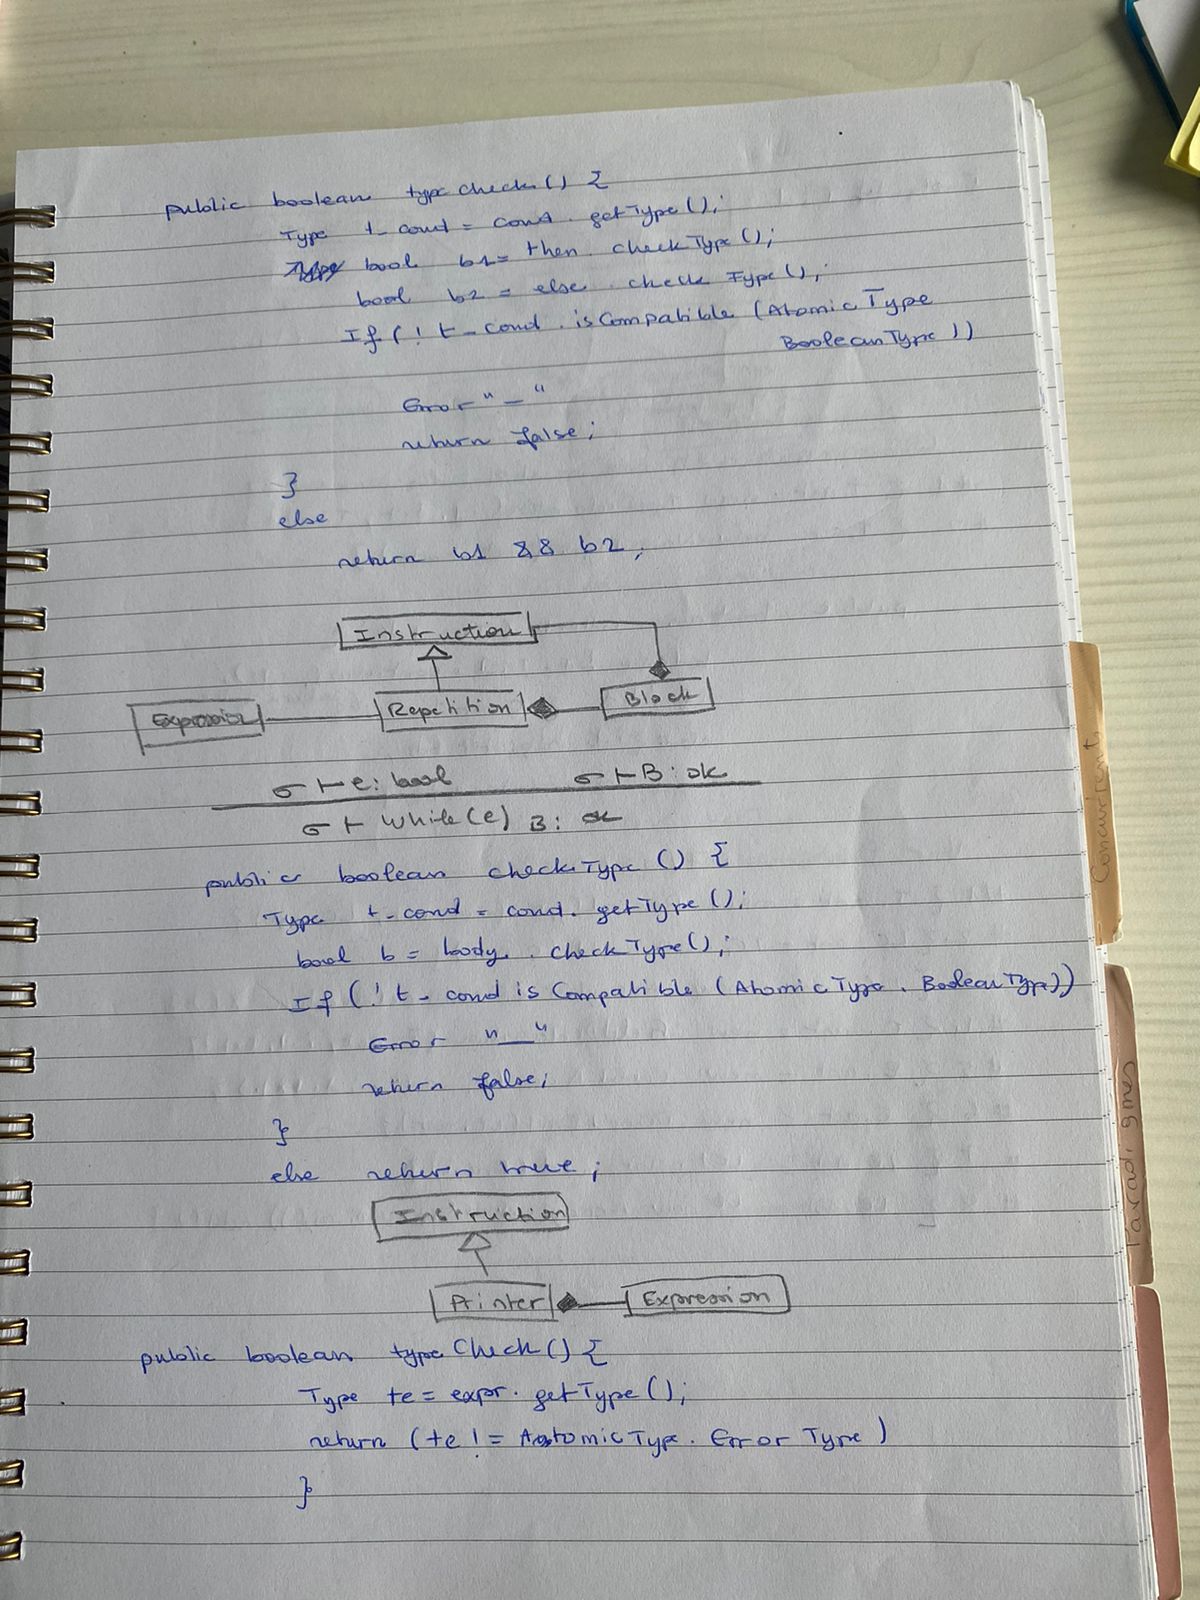 public boolean typeCheck() {
Type t_cond = cond. getType();
bool b1 = then. checkType();
bool b2 = else. checkType();
If (! t_cond. isCompatible (AtomicType
BooleanType))
Error "_"
return false;
}
else
return b1 && b2;
Instruction
Expression Repetition Block
σ ⊢ e: bool σ ⊢ B: ok
σ ⊢ While(e) B: ok
public boolean checkType () {
Type t_cond = cond. getType();
bool b = body. checkType();
If (! t_cond isCompatible (AtomicType. BooleanType))
Error "__"
return false;
}
else return true;
Instruction
Printer Expression
public boolean typeCheck() {
Type te = expr. getType();
return (te != AtomicType. ErrorType)
}
Concurrent
Paradigmes